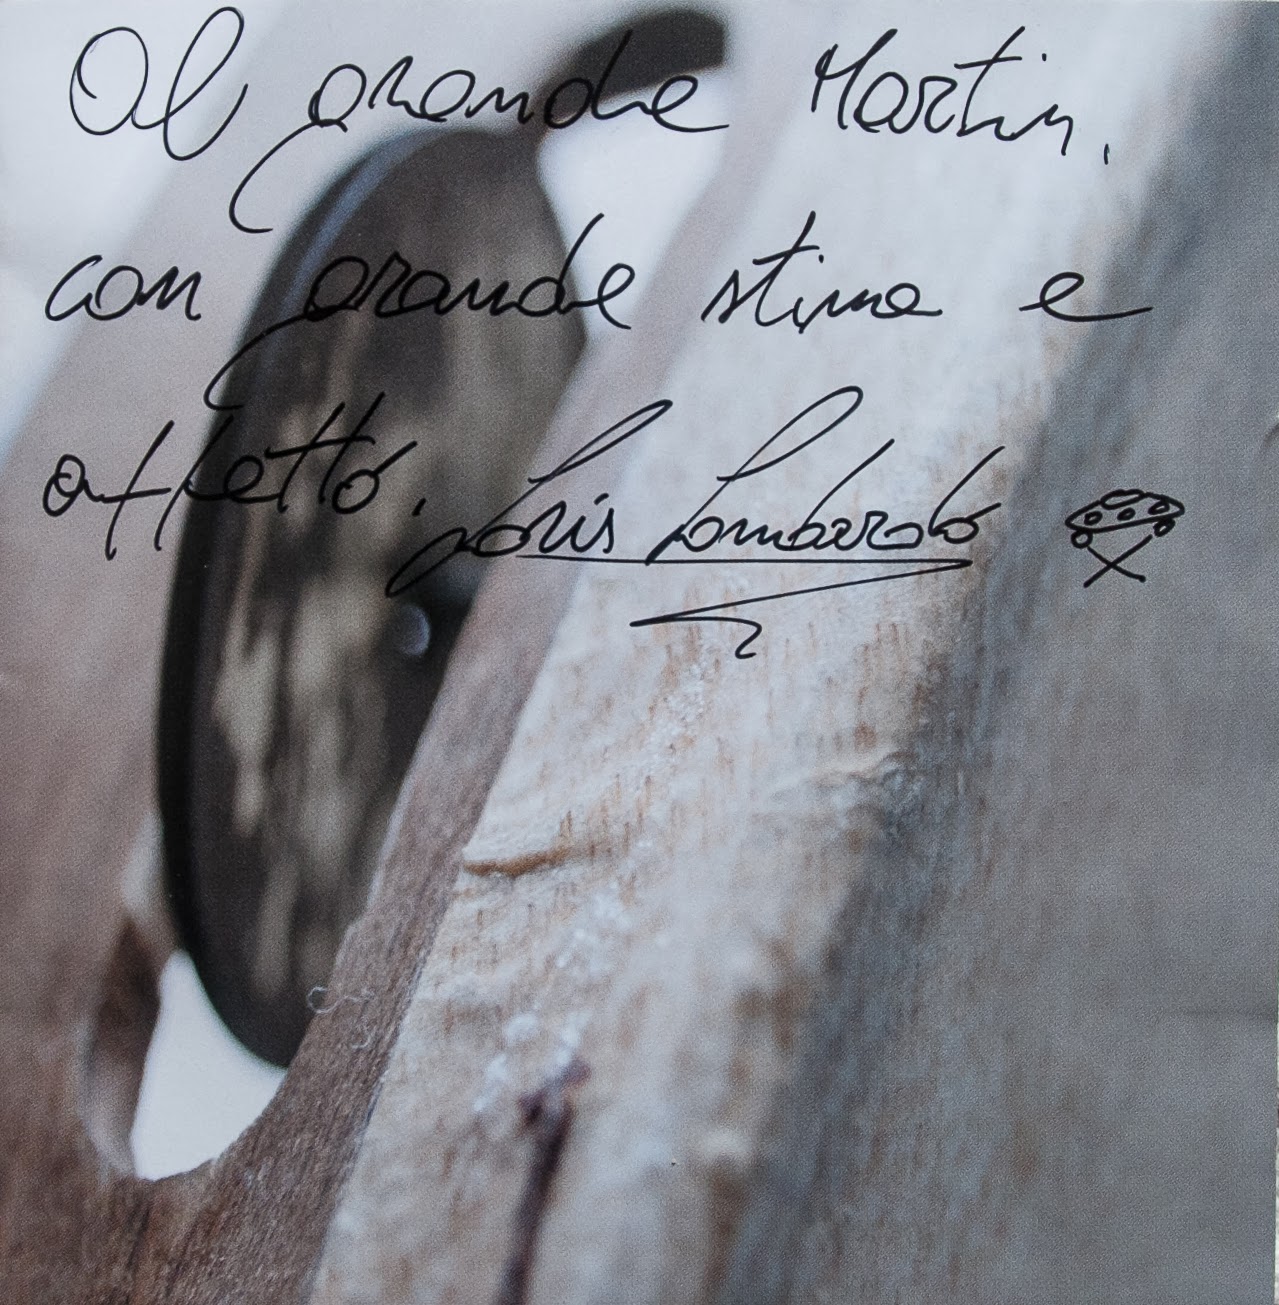 Al grande Martin,
con grande stima e
affetto. Loris Lombardo